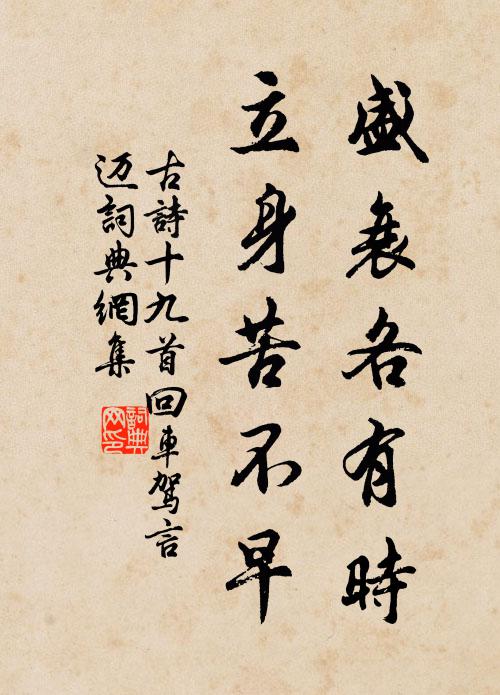 盛衰各有時
立身苦不早
古詩十九首回車駕言
迈詞典網集
詞典
网印